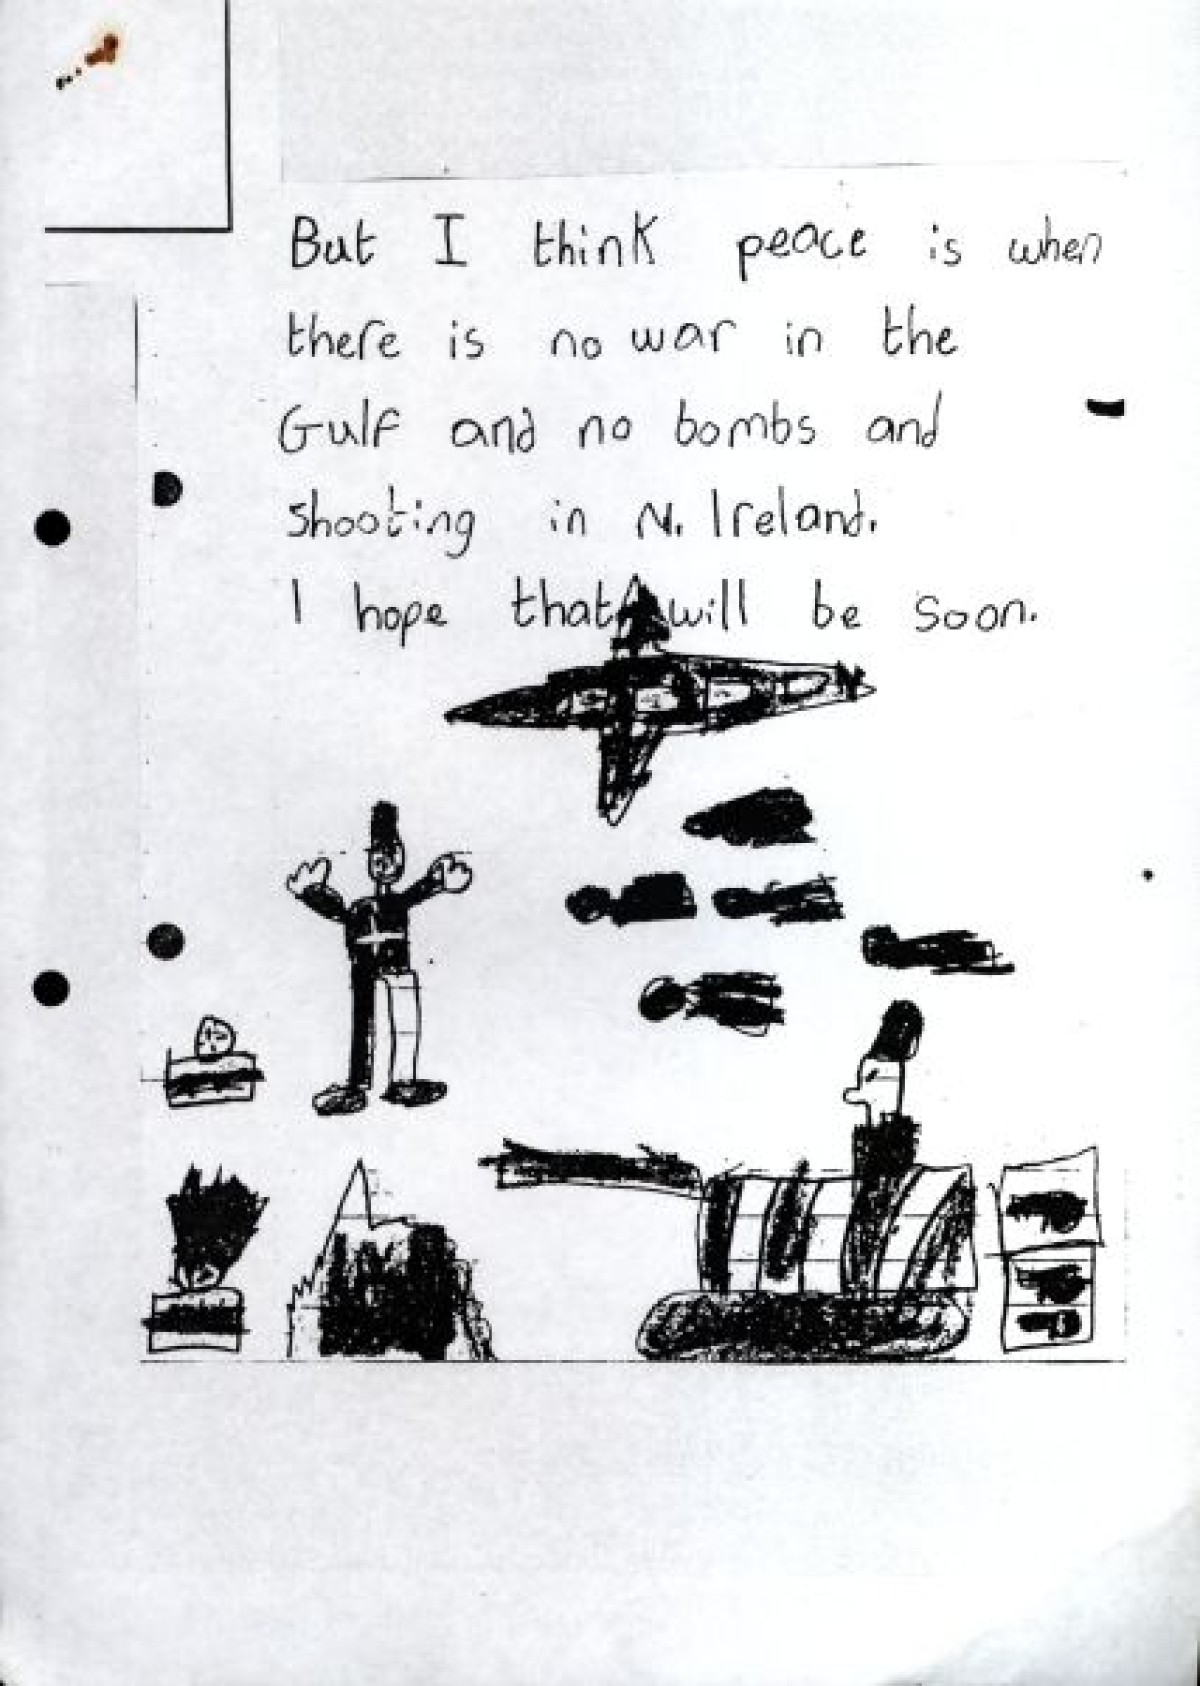 But I think peace is when
there is no war in the
Gulf and no bombs and
shooting in N. Ireland.
I hope that will be soon.